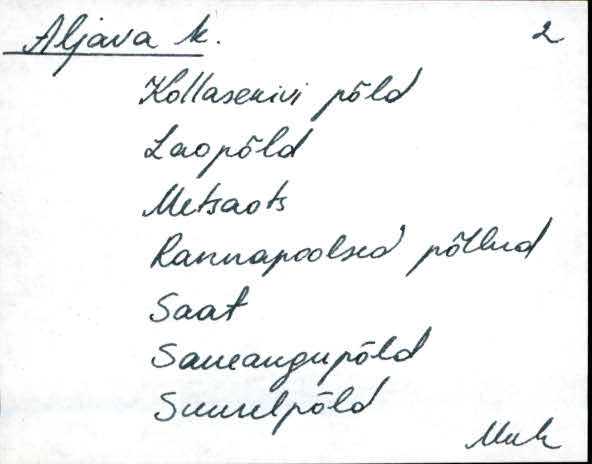 Aljava k. 2
Kollasekivi põld
Laopõld
Metsaots
Rannapoolsed põllud
Saat
Saueaugupõld
Suurelpõld
Muh